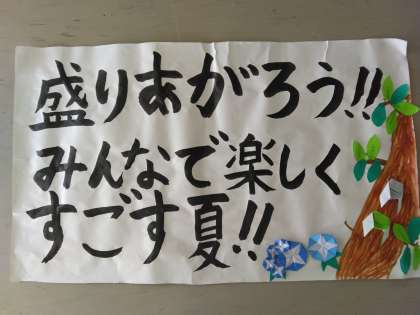 盛りあがろう!!
みんなで楽しく
すごす夏!!